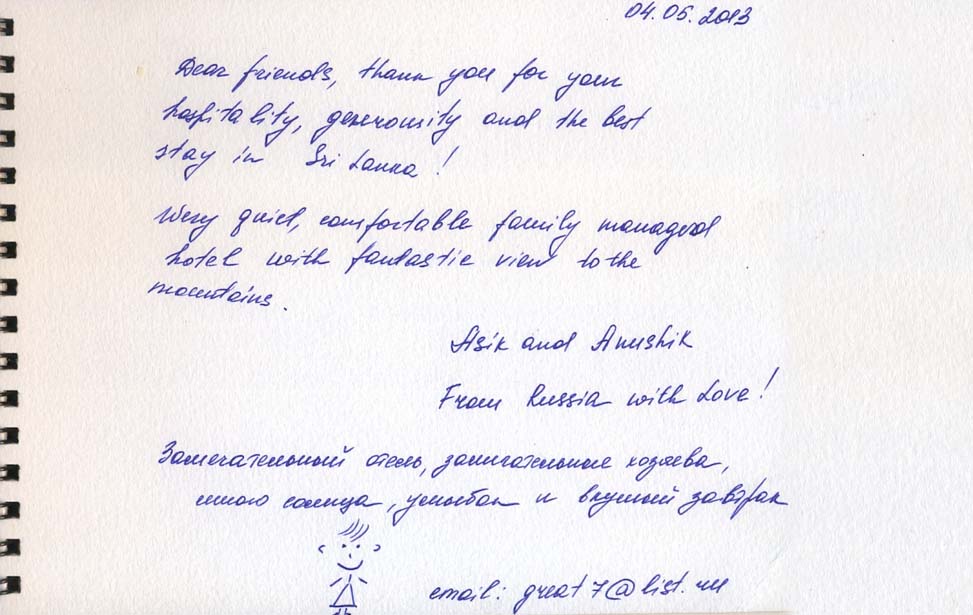 04.05.2013
Dear friends, thank you for your
hospitality, generousity and the best
stay in Sri Lanka!
Wery quiet, comfortable family managed
hotel with fantastic view to the
mountains.
Asik and Anushik
From Russia with Love!
Замечательный отель, замечательные хозяева,
много солнца, улыбок и вкусный завтрак
email: great7@list.ru